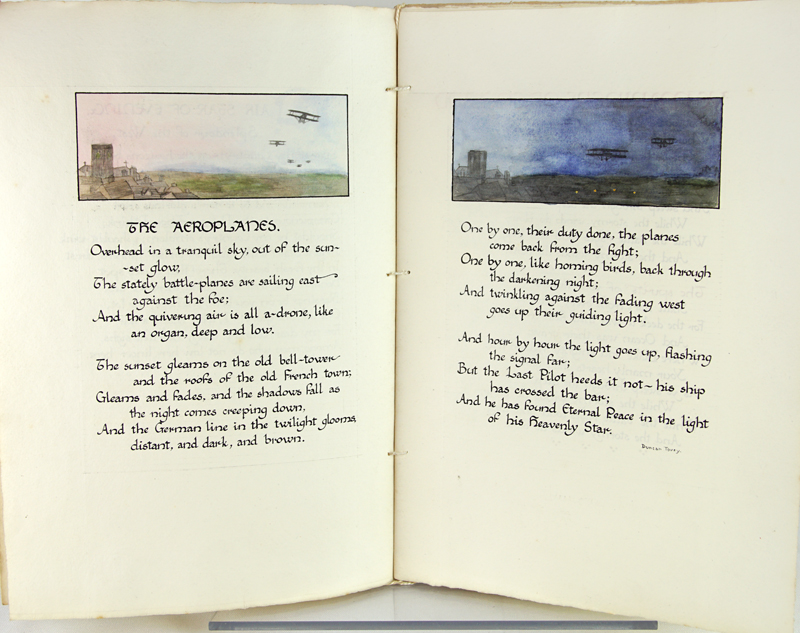 THE AEROPLANES.
Overhead in a tranquil sky, out of the sun-
-set glow,
The stately battle-planes are sailing east
against the foe;
And the quivering air is all a-drone, like
an organ, deep and low.
The sunset gleams on the old bell-tower
and the roofs of the old French town;
Gleams and fades, and the shadows fall as
the night comes creeping down,
And the German line in the twilight glooms,
distant, and dark, and brown.
One by one, their duty done, the planes
come back from the fight;
One by one, like homing birds, back through
the darkening night;
And twinkling against the fading west
goes up their guiding light.
And hour by hour the light goes up, flashing
the signal far;
But the Last Pilot heeds it not~ his ship
has crossed the bar;
And he has found Eternal Peace in the light
of his Heavenly Star.
Duncan Tovey.